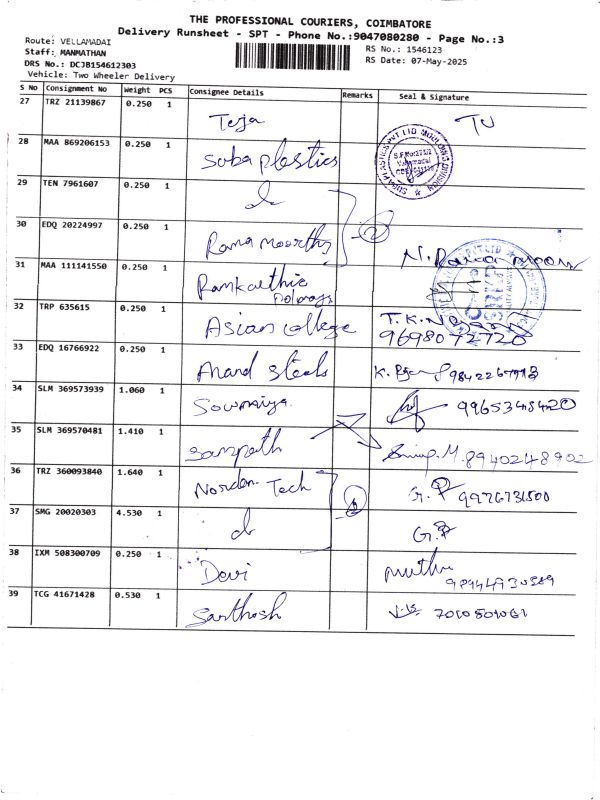 THE PROFESSIONAL COURIERS, COIMBATORE
Delivery Runsheet - SPT - Phone No.:9047080280 - Page No.:3
Route: VELLAMADAI
RS No.: 1546123
Staff: MANMATHAN
RS Date: 07-May-2025
DRS No.: DCJB154612303
Vehicle: Two Wheeler Delivery
S No Consignment No Weight PCS Consignee Details Remarks Seal & Signature
27 TRZ 21139867 0.250 1 Teja
28 MAA 869206153 0.250 1 Suba plastics
29 TEN 7961607 0.250 1
30 EDQ 20224997 0.250 1 Rama moorthy
31 MAA 111141550 0.250 1
32 TRP 635615 0.250 1 Asian college 9698072720
33 EDQ 16766922 0.250 1 Anand Steels
34 SLM 369573939 1.060 1 Sowmiya
35 SLM 369570481 1.410 1 Sampath 8940248902
36 TRZ 360093840 1.640 1 Tech 9976731500
37 SMG 20020303 4.530 1
38 IXM 508300709 0.250 1 Devi
39 TCG 41671428 0.530 1 Santhosh